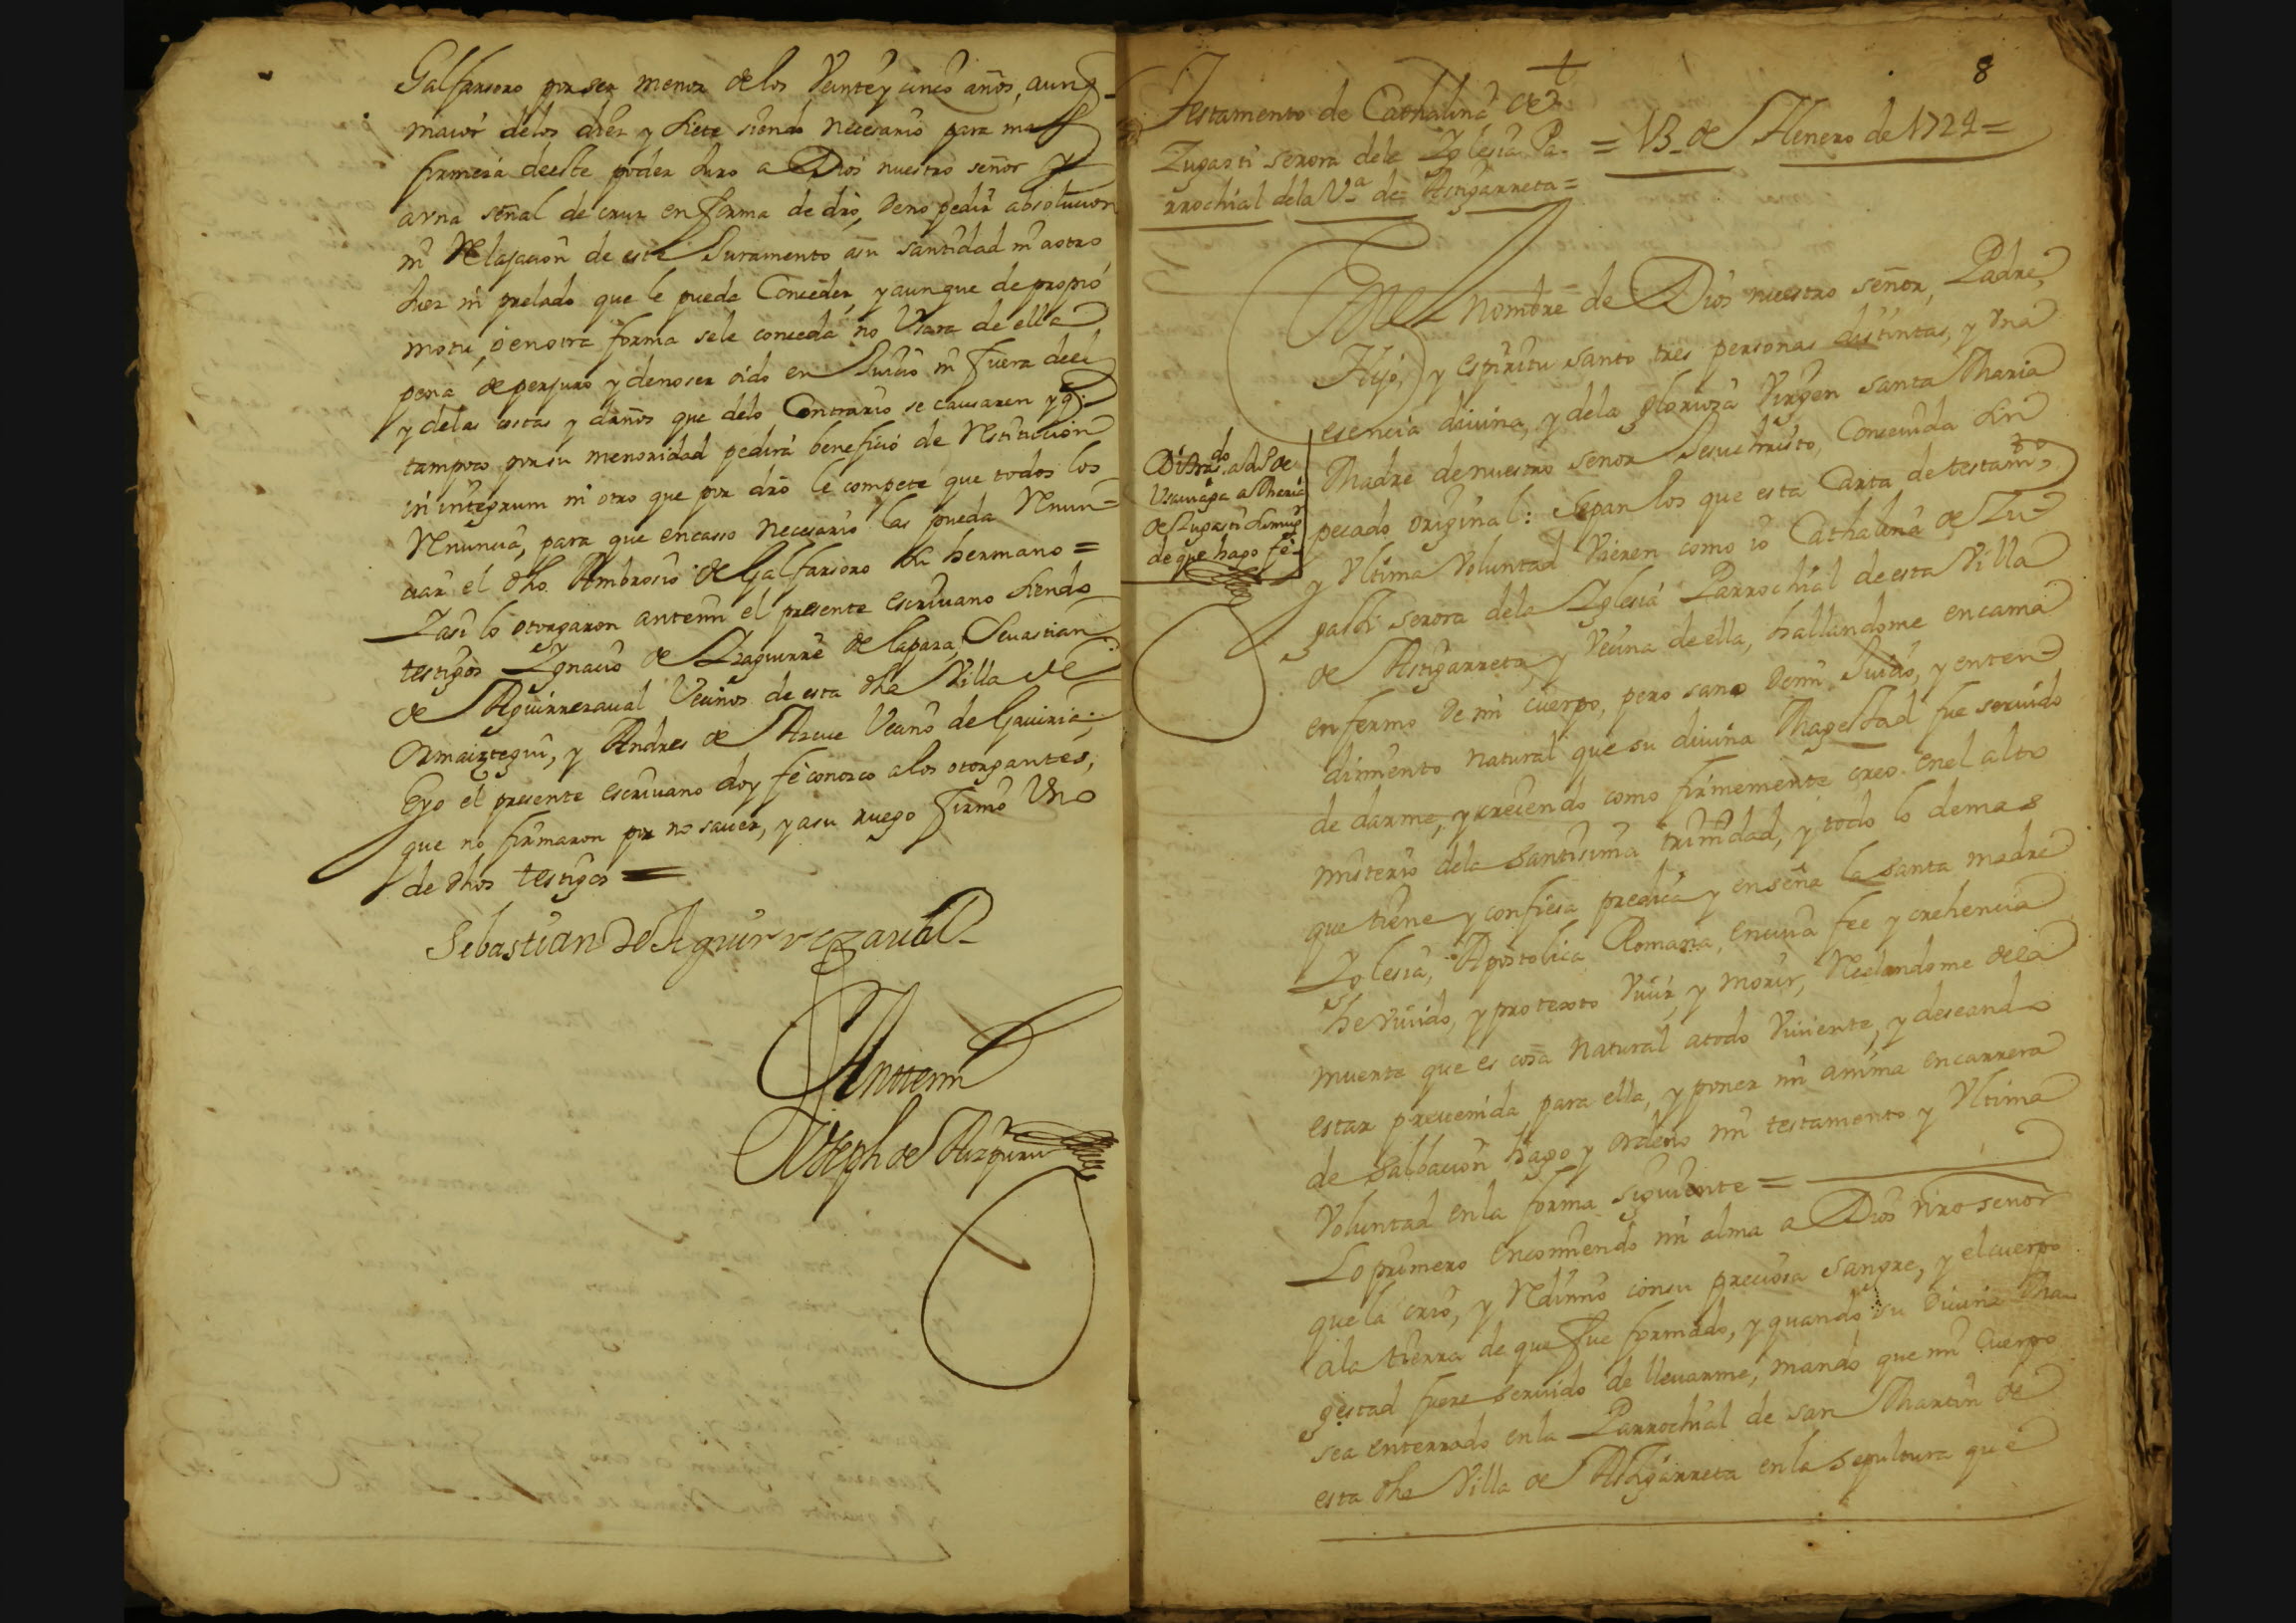 Galfarsoro por ser menor delos Veinte y cinco años, aunq
maior delos diez y siete siendo necesario para mas
firmeza deeste poder Juro a Dios nuestro señor y
avna señal de cruz en forma de dro, deno pedir absolucion
ni Relajacion de este Juramento asu santidad ni aotro
Juez ni prelado que le pueda Conceder, y aunque de propio
motu, o enotra forma sele conceda no Vsara de ella
pena de perjuro y denoser oido en Juicio ni fuera deel
y delas costas y daños que delo Contrario se causaren y q
tampoco por su menoridad pedira beneficio de Restitucion
in integrum ni otro que por dro le compete que todos los
Renuncia, para que encasso necesario las pueda Renun=
ciar el dho Ambrosio de Galfarsoro su hermano =
Yasi lo otorgaron antemi el presente escriuano siendo
testigos Ygnacio de Yzaguirre de lapaza, Seuastian
de Aguirrezaual Vecinos de esta dha Villa de
Ormaiztegui, y Andres de Arcue Vecino de Gauiria;
Eyo el presente escriuano doy fe conozco alos otorgantes,
que no firmaron por no sauer, y asu ruego firmo Vno
de dhos testigos =
Sebastian de Aguirrezabal
Anttemi
Joseph de Aizpuru
8
Testamento de Cathalina de
Zugasti serora dela Yglesia Pa-
rrochial dela Va de Astigarreta =
= 13 de Henero de 1724 =
En el Nombre de Dios nuestro señor, Padre,
Hijo, y espiritu santo tres personas distintas, y Vna
esencia diuina, y dela gloriosa Virgen santa Maria
Madre denuestro señor Jesuchristo, Conceuida sin
pecado original: Sepan los que esta Carta de testamto
y Vltima Voluntad Vieren como io Cathalina de Zu-
gasti serora dela Yglesia Parrochial de esta Villa
de Astigarreta, y Vecina de ella, hallandome encama
enfermo de mi cuerpo, pero sano demi Juicio, y enten-
dimiento natural que su diuina Magestad fue seruido
de darme, y creiendo como firmemente creo enel alto
misterio dela santisima trinidad, y todo lo demas
que tiene y confiesa predica y enseña la santa madre
Yglesia, Apostolica Romana, encuia fee y crehencia
he viuido, y protexto Viuir, y morir, Reelandome dela
muerte que es cosa natural atodo Viuiente, y deseando
estar preuenida para ella, y poner mi anima encarrera
de salbacion hago y ordeno mi testamento y Vltima
Voluntad enla forma siguiente =
Lo primero encomiendo mi alma a Dios nro señor
quela crio, y Redimio consu preciosa sangre, y el cuerpo
ala tierra de que fue formado, y quando su diuina Ma
gestad fuere seruido de lleuarme, mando que mi Cuerpo
sea enterrado enla Parrochial de san Martin de
esta dha Villa de Astigarreta enla sepultura que
Di tras.do
Vsauiaga a Maria
de Zugasti su
de que hago fe